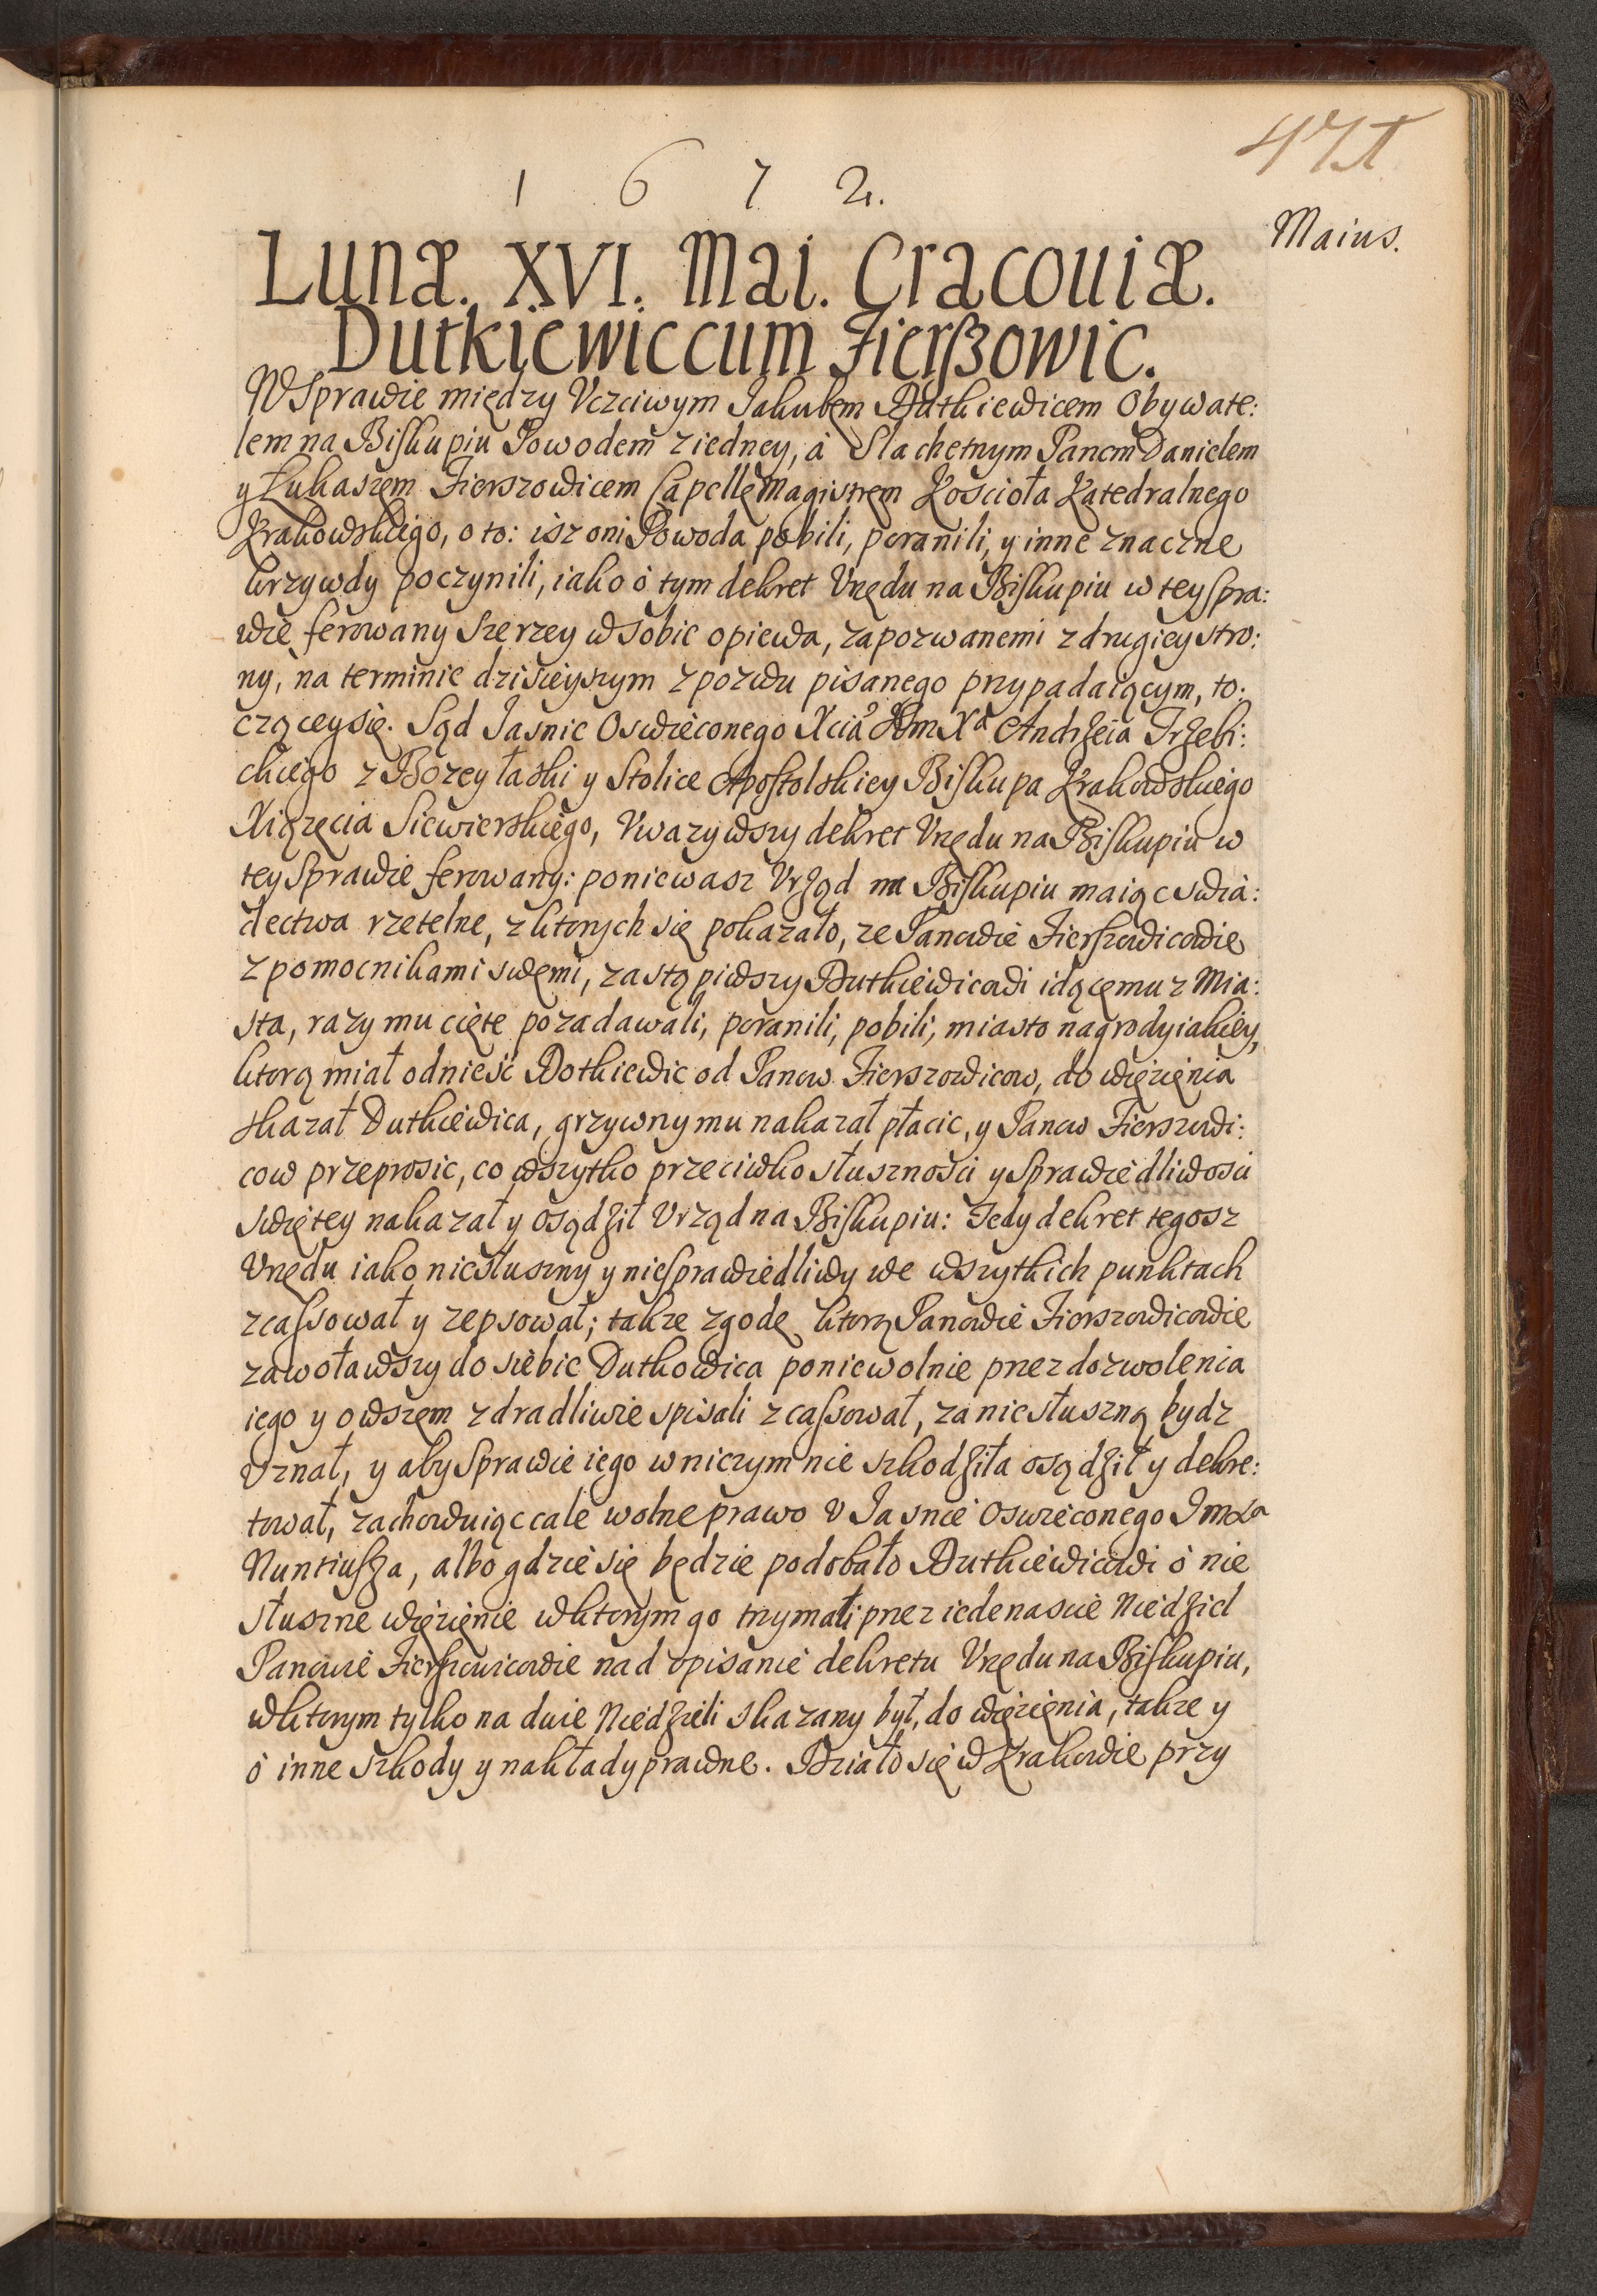 471
1672.
Maius.
Lunæ. XVI. Mai. Cracouiæ.
Dutkiewiccum Fierßowic.
W Sprawie między Vczciwym Jakubem Dutkiewicem Obywate:
lem na Biskupiu Powodem z iedney, á Slachetnym Panem Danielem
y Łukaszem Fierszowicem Capellę Magistrem Kościoła Katedralnego
Krakowskiego, o to: isz oni Powoda pobili, poranili, y inne znaczne
krzywdy poczynili, iako ó tym dekret Vrzędu na Biskupiu w tey spra:
wie ferowany szerzey w sobie opiewa, zapozwanemi z drugiey stro:
ny, na terminie dzisieyszym z pozwu pisanego przypadaiącym, to:
czącey się. Sąd Jasnie Oswieconego Xcia Jm Xa Andrzeia Trzebi:
ckiego z Bozey łaski y Stolice Apostolskiey Biskupa Krakowskiego
Xiązęcia Siewierskiego, Vwazywszy dekret Vrzędu na Biskupiu w
tey Sprawie ferowany: poniewasz Vrząd na Biskupiu maiąc swia:
dectwa rzetelne, z ktorych się pokazało, ze Panowie Fierszowicowie
z pomocnikami swemi, zastąpiwszy Dutkiewicowi idącemu z Mia:
sta, razy mu cięte pozadawali, poranili, pobili, miasto nagrody iakiey,
ktorą miał odnieść Dotkiewic od Panow Fierszowicow, do więzienia
skazał Dutkiewica, grzywny mu nakazał płacic, y Panow Fierszowi:
cow przeprosic, co wszytko przeciwko słuszności y Sprawiedliwosci
swiętey nakazał y osądził Vrząd na Biskupiu: Tedy dekret tegosz
Vrzędu iako niesłuszny y niesprawiedliwy we wszytkich punktach
zcassował y zepsował; takze zgodę ktorą Panowie Fierszowicowie
zawoławszy do siebie Dutkowica poniewolnie przez dozwolenia
iego y owszem zdradliwie spisali zcassował, za niesłuszną bydz
Vznał, y aby Sprawie iego w niczym nie szkodziła osądził y dekre:
tował, zachowuiąc cale wolne prawo V Jasnie Oswieconego Jm Xa
Nuntiusza, albo gdzie się będzie podobało Dutkiewicowi ó nie
słuszne więzienie w ktorym go trzymali przez iedenascie Niedziel
Panowie Fierszowicowie nad opisanie dekretu Vrzędu na Biskupiu,
w ktorym tylko na dwie Niedzieli skazany był, do więzienia, takze y
ó inne szkody y nakłady prawne. Działo się w Krakowie przy